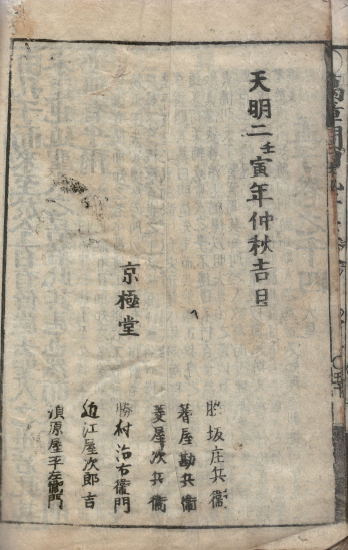 天明二壬寅年仲秋吉日
京極堂
勝坂庄兵衛
蓍屋勘兵衛
菱屋次兵衛
勝村治右衞門
近江屋次郎吉
須原屋平左衞門